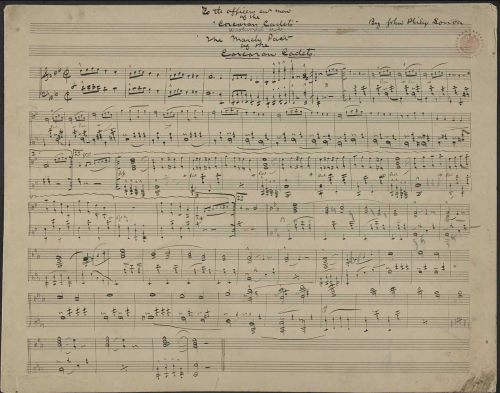 To the officers and men
of the
"Corcoran Cadets"
"The March Past
of the
Corcoran Cadets
By John Philip Sousa